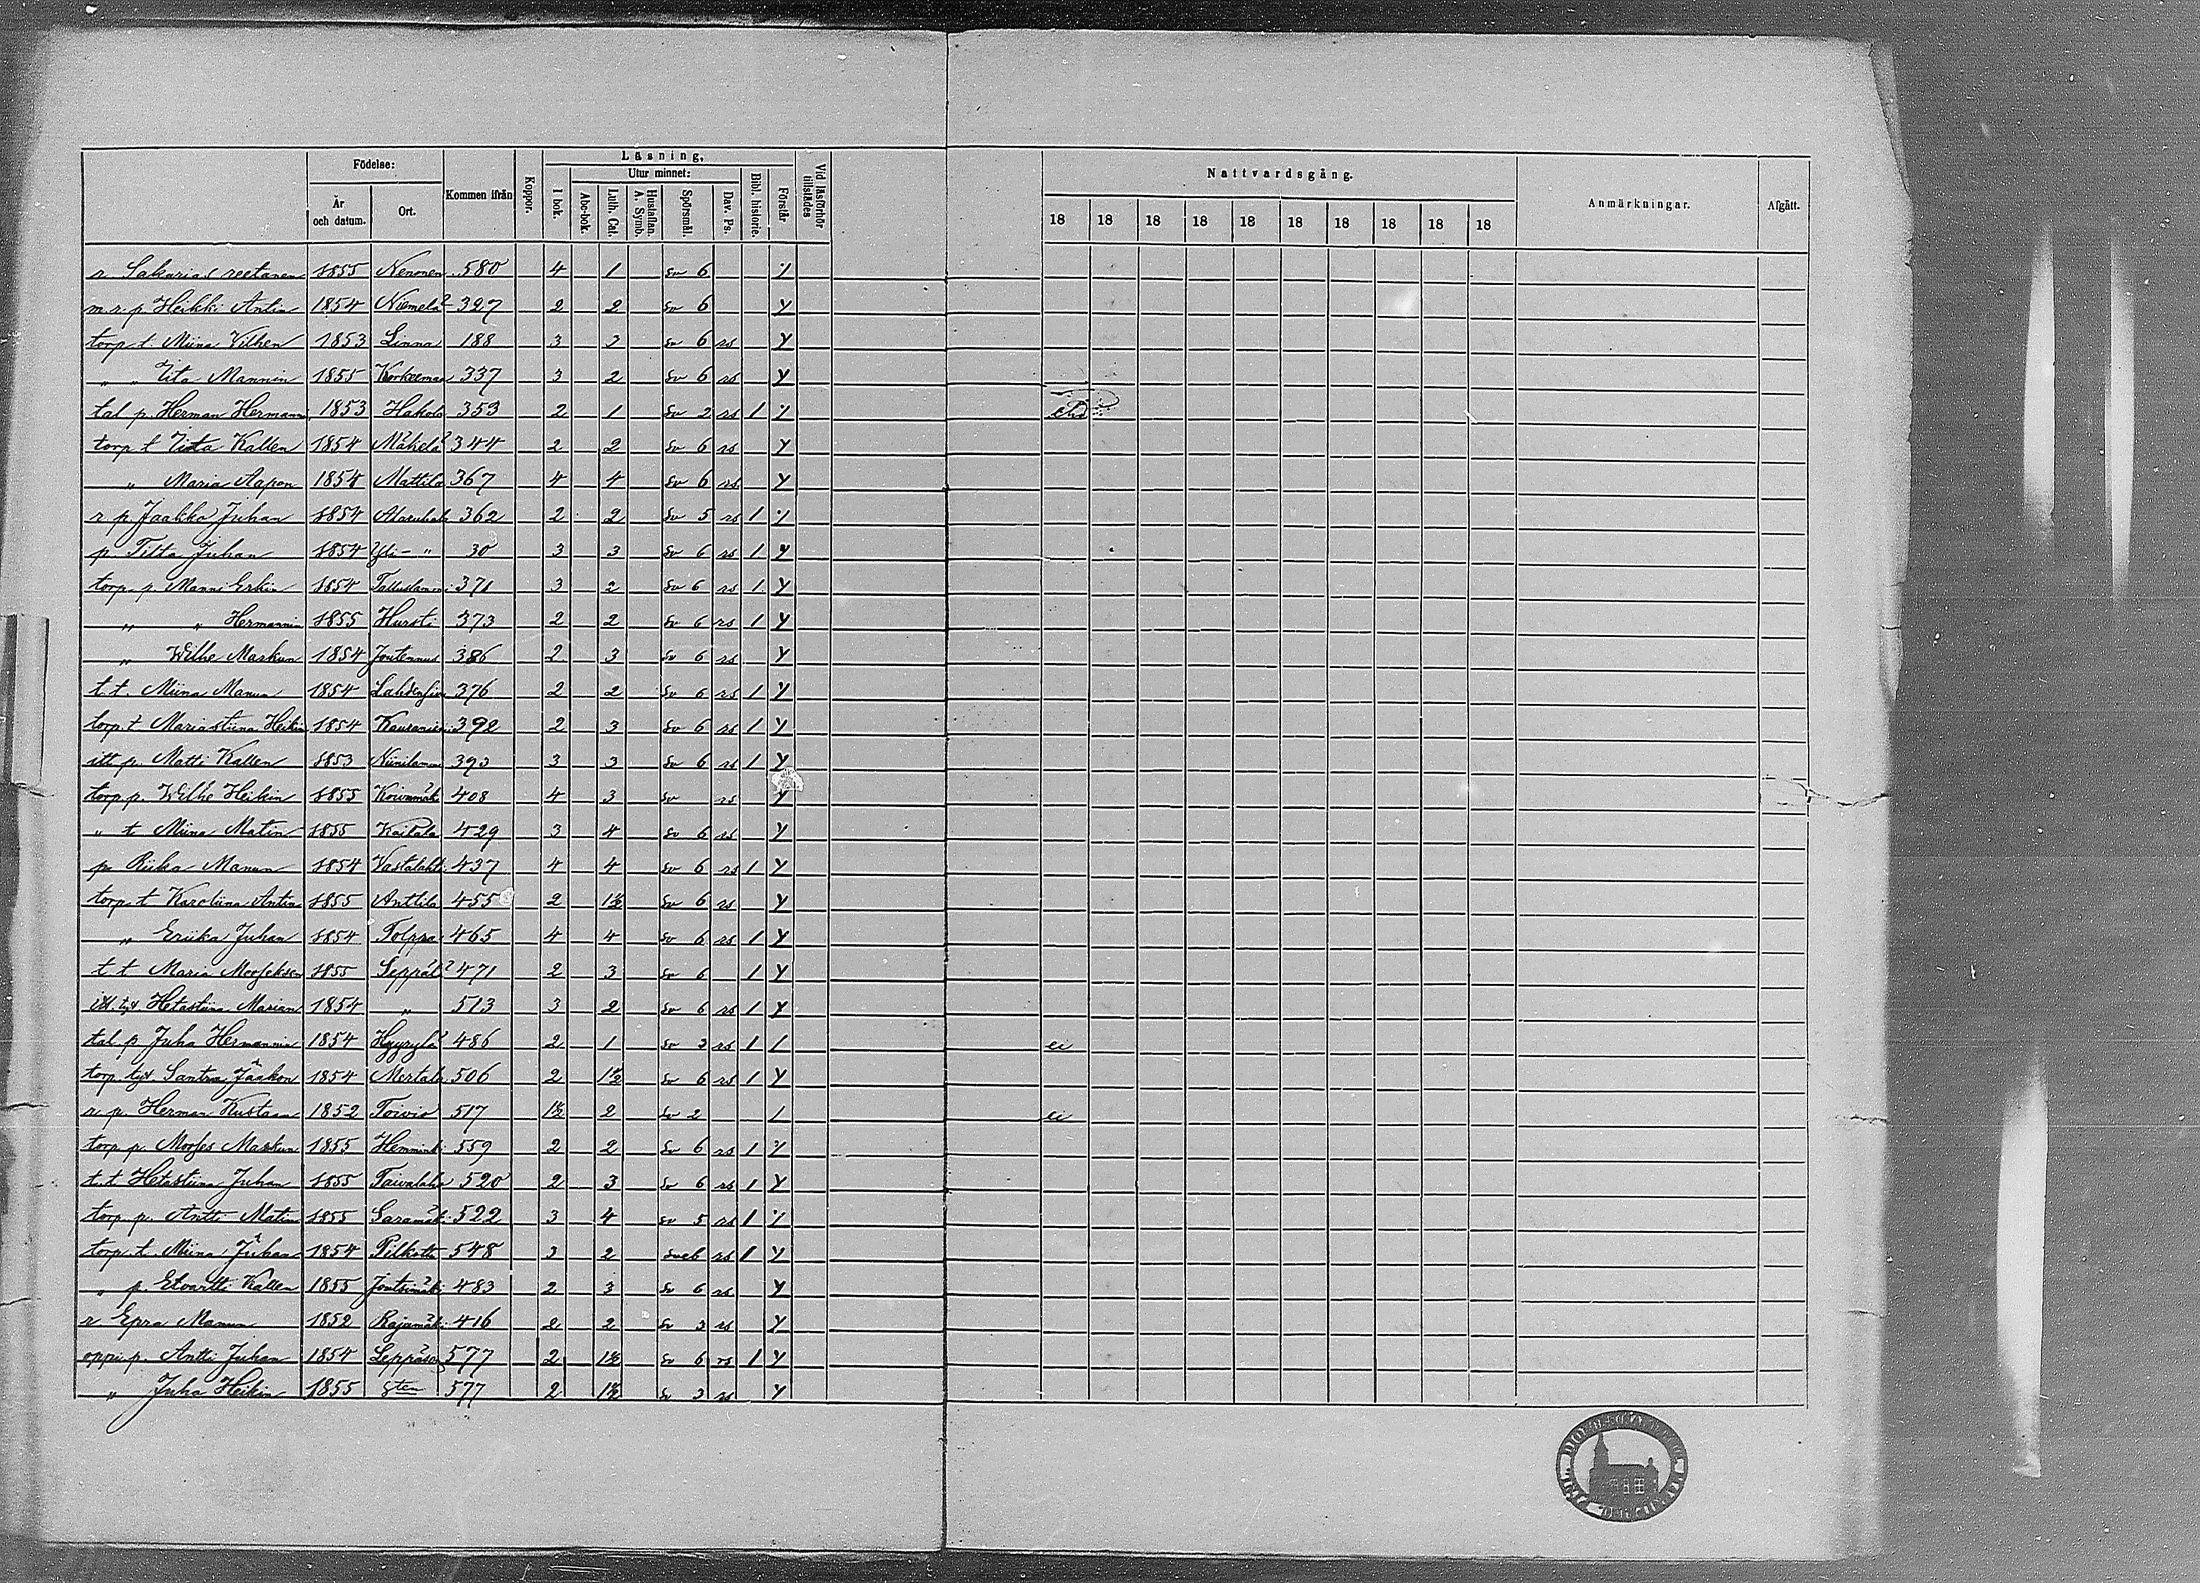 Födelse: Läsning, Nattvardsgång.
År och datum. Ort. Kommen ifrån Koppor. I bok. Utur minnet: Abc-bok. Luth. Cat. Hustaflan. A. Symb. Spörsmål. Dav. Ps. Bibl. historie. Förstår. Vid läsförhör tillstädes 18 18 18 18 18 18 18 18 18 18 Anmärkningar. Afgått.
r. Sakarias reetanen 1855 Nenonen 580 4 1 Sv 6
m. r. p. Heikki Antin 1854 Niemelä 327 2 2 Sv 6 Y
torp. t. Miina Vilhen 1853 Linna 188 3 3 Sv 6 rs Y
" " Mannin 1855 337 3 2 Sv 6 rs Y
tal. p. Herman Hermann 1853 Hakola 353 2 1 Sv 2 rs 1
torp. t. Kallen 1854 Mäkelä 344 2 2 Sv 6 rs Y
" Maria Aapon 1854 Mattila 367 4 4 Sv 6 rs Y
r. p. Jaakko Juhan 1854 362 2 2 Sv 5 rs 1
p. Juhan 1854 Yli- " 30 3 3 Sv 6 rs 1 Y
torp. p. Manni Erkin 1854 371 3 2 Sv 6 rs 1 Y
" " Hermannin 1855 Hursti 373 2 2 Sv 6 rs 1 Y
" Wilhe Markun 1854 386 2 3 Sv 6 rs Y
t. t. Miina Manun 1854 376 2 2 Sv 6 rs 1 Y
torp. t Mariastiina Heikin 1854 392 2 3 Sv 6 rs 1 Y
itt p. Matti Kallen 1853 393 3 3 Sv 6 rs 1 Y
torp. p. Wilhe Heikin 1855 Koivumäki 408 4 3 Sv rs Y
" t Miina Matin 1855 429 3 4 Sv 6 rs Y
p. Riika Manun 1854 Vastalahti 437 4 4 Sv 6 rs 1 Y
torp. t Karoliina Antin 1855 Anttila 455 2 1½ Sv 6 rs Y
" Eriika Juhan 1854 Tolppa 465 4 4 Sv 6 rs 1 Y
t t Maria Mooseksen 1855 Seppäl 471 2 3 Sv 6 1 Y
itt. tyt. Hetastiina Marian 1854 " 513 3 2 Sv 6 rs 1 Y
tal. p. Juha Hermannin 1854 Hyyrylä 486 2 1 Sv 3 rs 1 / ei
torp. tyt. Santra Jaakon 1854 Mertala 506 2 1½ Sv 6 rs 1 Y
r. p. Herman Kustaan 1852 Toivio 517 1½ 2 Sv 2 / ei
torp. p. Mooses Markun 1855 Hemminki 559 2 2 Sv 6 rs 1
t. t Hetastiina Juhan 1855 520 2 3 Sv 6 rs 1 Y
torp. p. Antti Matin 1855 Saramäki 522 3 4 Sv 5 rs 1
torp. t. Miina Juhan 1854 548 3 2 rs 1 Y
" p. Etvartti Kallen 1855 483 2 3 Sv 6 rs Y
r Epra Manun 1852 Rajamäki 416 2 2 Sv 3 rs Y
oppi p. Antti Juhan 1854 577 2 1½ Sv 6 rs 1 Y
" Juha Heikin 1855 577 2 1½ Sv 3 rs Y